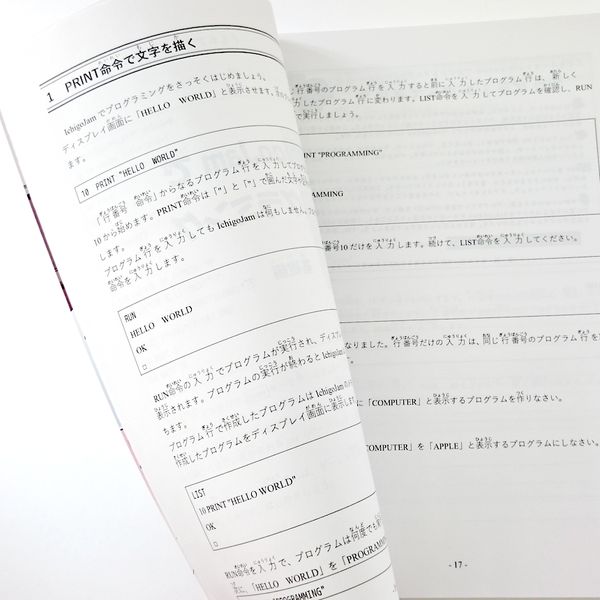 1 PRINT命令で文字を描く
IchigoJamでプログラミングをさっそくはじめましょう。
ディスプレイ画面に「HELLO WORLD」と表示させます。
ます。
10 PRINT "HELLO WORLD"
「行番号 命令」からなるプログラム行を入力してプロ
10から始めます。PRINT命令は「"」と「"」で囲んだ文字
します。
プログラム行を入力してもIchigoJamは何もしません。
命令を入力します。
RUN
HELLO WORLD
OK
□
RUN命令の入力でプログラムが実行され、ディス
表示されます。プログラムの実行が終わるとIchigoJam
ちます。
プログラム行で作成したプログラムはIchigoJamの
作成したプログラムをディスプレイ画面に表示しま
LIST
10 PRINT "HELLO WORLD"
OK
□
RUN命令を入力で、プログラムは何度でも実
次に、「HELLO WORLD」を「PROGRAMM
行番号のプログラム行を入力すると前に入力したプログラム行は、新しく
力したプログラム行に変わります。LIST命令を入力してプログラムを確認し、RUN
で実行しましょう。
INT "PROGRAMMING"
AMMING
番号10だけを入力します。続けて、LIST命令を入力してください。
なりました。行番号だけの入力は、同じ行番号のプログラム行を
に「COMPUTER」と表示するプログラムを作りなさい。
COMPUTER」を「APPLE」と表示するプログラムにしなさい。
- 17 -